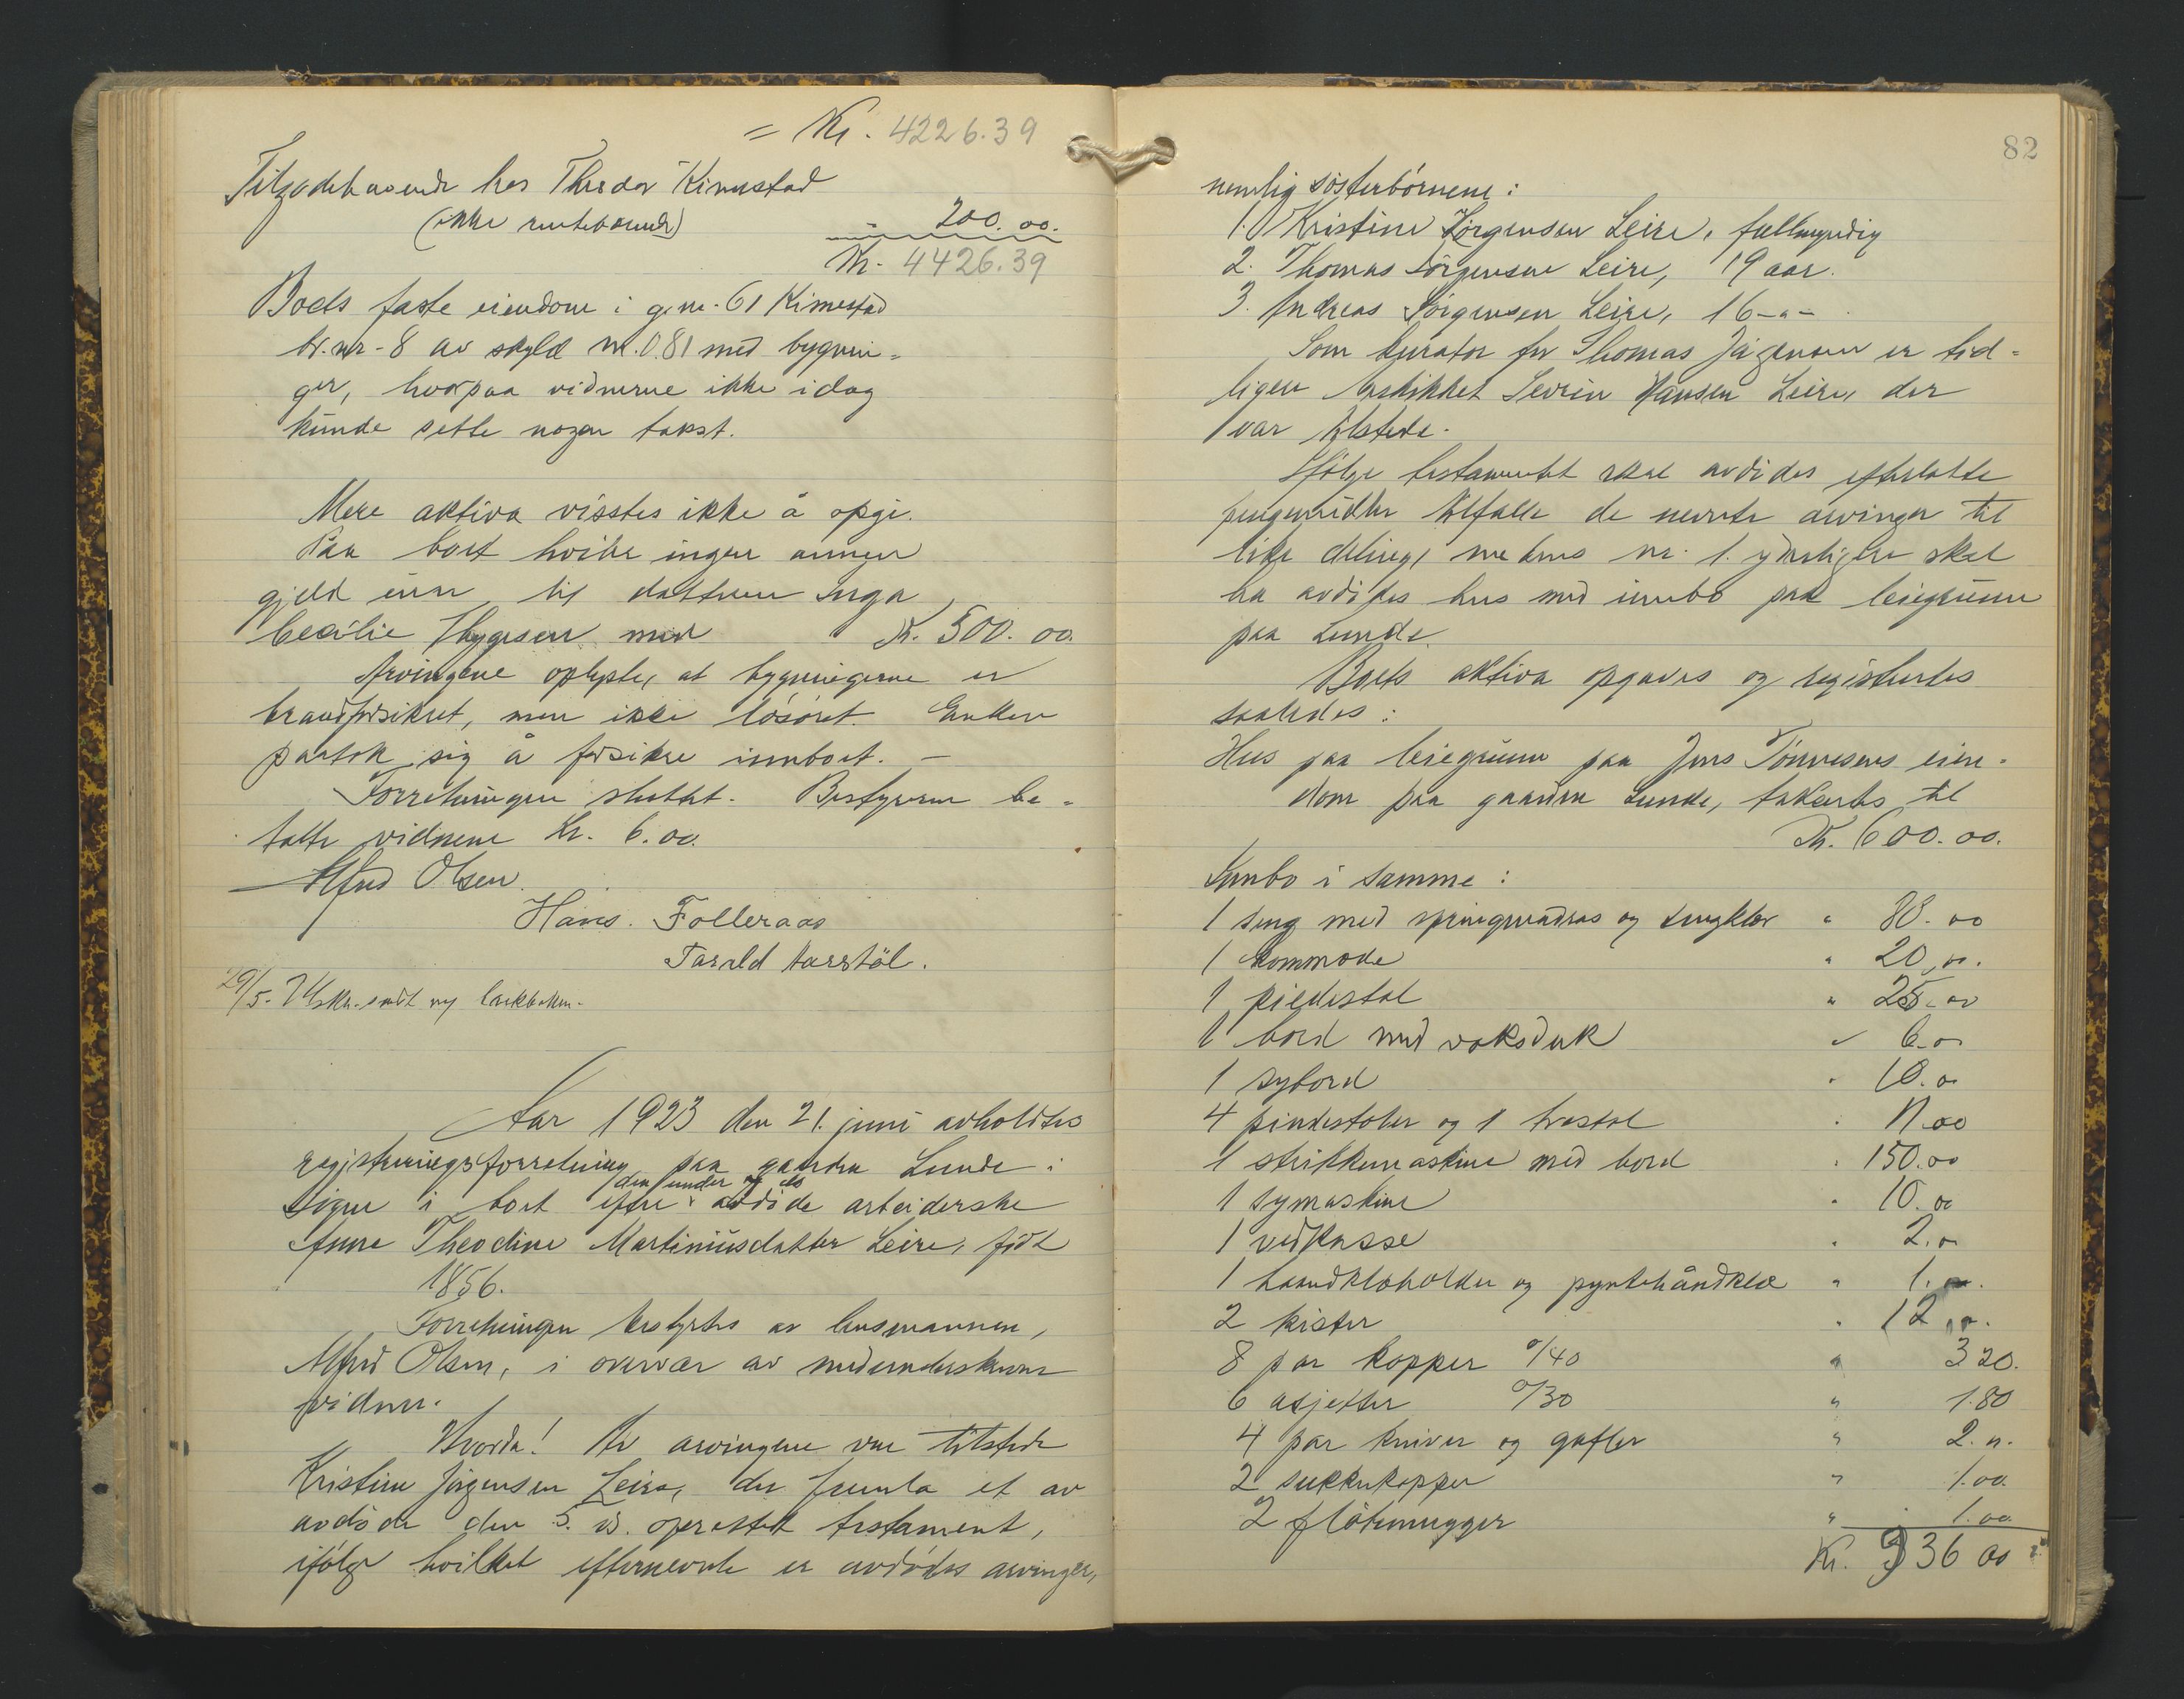 = Kr. 4226.39
Tilgodehavende hos Theodor Kimestad
(ikke rentebærende) - 200.00.
Kr. 4426.39
Boets faste eiendom i g.nr. 61 Kimestad
br.nr. 8 av skyld mk. 0.81 med bygnin-
ger, hvorpaa vidnerne ikke idag
kunde sette nogen takst.
Mere aktiva visstes ikke å opgi.
Paa boet hviler ingen annen
gjeld enn til datteren Inga
Cecilie Thygesen med Kr. 500.00.
Arvingene oplyste, at bygningerne er
brandforsikret, men ikke løsøret. Enken
paatok sig å forsikre innboet. -
Forretningen sluttet. Bestyreren be-
talte vidnene kr. 6.00.
Alfred Olsen.
Hans. Folleraas
Tarald Aarstöl.
29/5. Utskr. sendt
Aar 1923 den 21. juni avholdtes
registreringsforretning paa gaarden Lunde i
den under
Søgne i boet efter avdøde arbeiderske
Anne Theodine Martiniusdatter Leire, født
1856.
Forretningen bestyrtes av lensmannen,
Alfred Olsen, i overvær av medunderskrevne
vidner.
Hvorda! Av arvingene var tilstede
Kristine Jörgensen Leire, der fremla et av
avdøde den 5. ds. oprettet testament,
ifølge hvilket efternevnte er avdødes arvinger,
82
nemlig søsterbörnene:
1. Kristine Jörgensen Leire, fullmyndig
2. Thomas Jörgensen Leire, 19 aar.
3. Andreas Jörgensen Leire, 16 -"-
Som kurator for Thomas Jörgensen er tid-
ligere beskikket Sevrin Hansen Leire, der
var tilstede.
Ifølge testamentet skal avdødes efterlatte
pengemidler tilfalle de nevnte arvinger til
like deling, mens nr. 1. ytterligere skal
ha avdødes hus med innbo paa leiegrunn
paa Lunde.
Boets aktiva opgaves og registrertes
saaledes:
Hus paa leiegrunn paa Jens Tönnesens eien-
dom paa gaarden Lunde, taksertes til
Kr. 600.00.
Innbo i samme:
1 seng med springmadras og sengklær " 80.00
1 kommode " 20.00.
1 piedestal " 25.00
1 bord med voksduk " 6.00
1 sybord " 10.00
4 pindestoler og 1 trestol " 11.00
1 strikkemaskine med bord " 150.00
1 symaskine " 10.00
1 vedkasse " 2.00
1 haandklæholder og pyntehåndklæ " 1.00.
2 kister " 12.00.
8 par kopper a/40 " 3 20.
6 asjetter a/30 " 1.80
4 par kniver og gafler " 2.00.
2 sukkerkopper " 1.00.
2 flötemugger " 1.00
Kr. 936 00